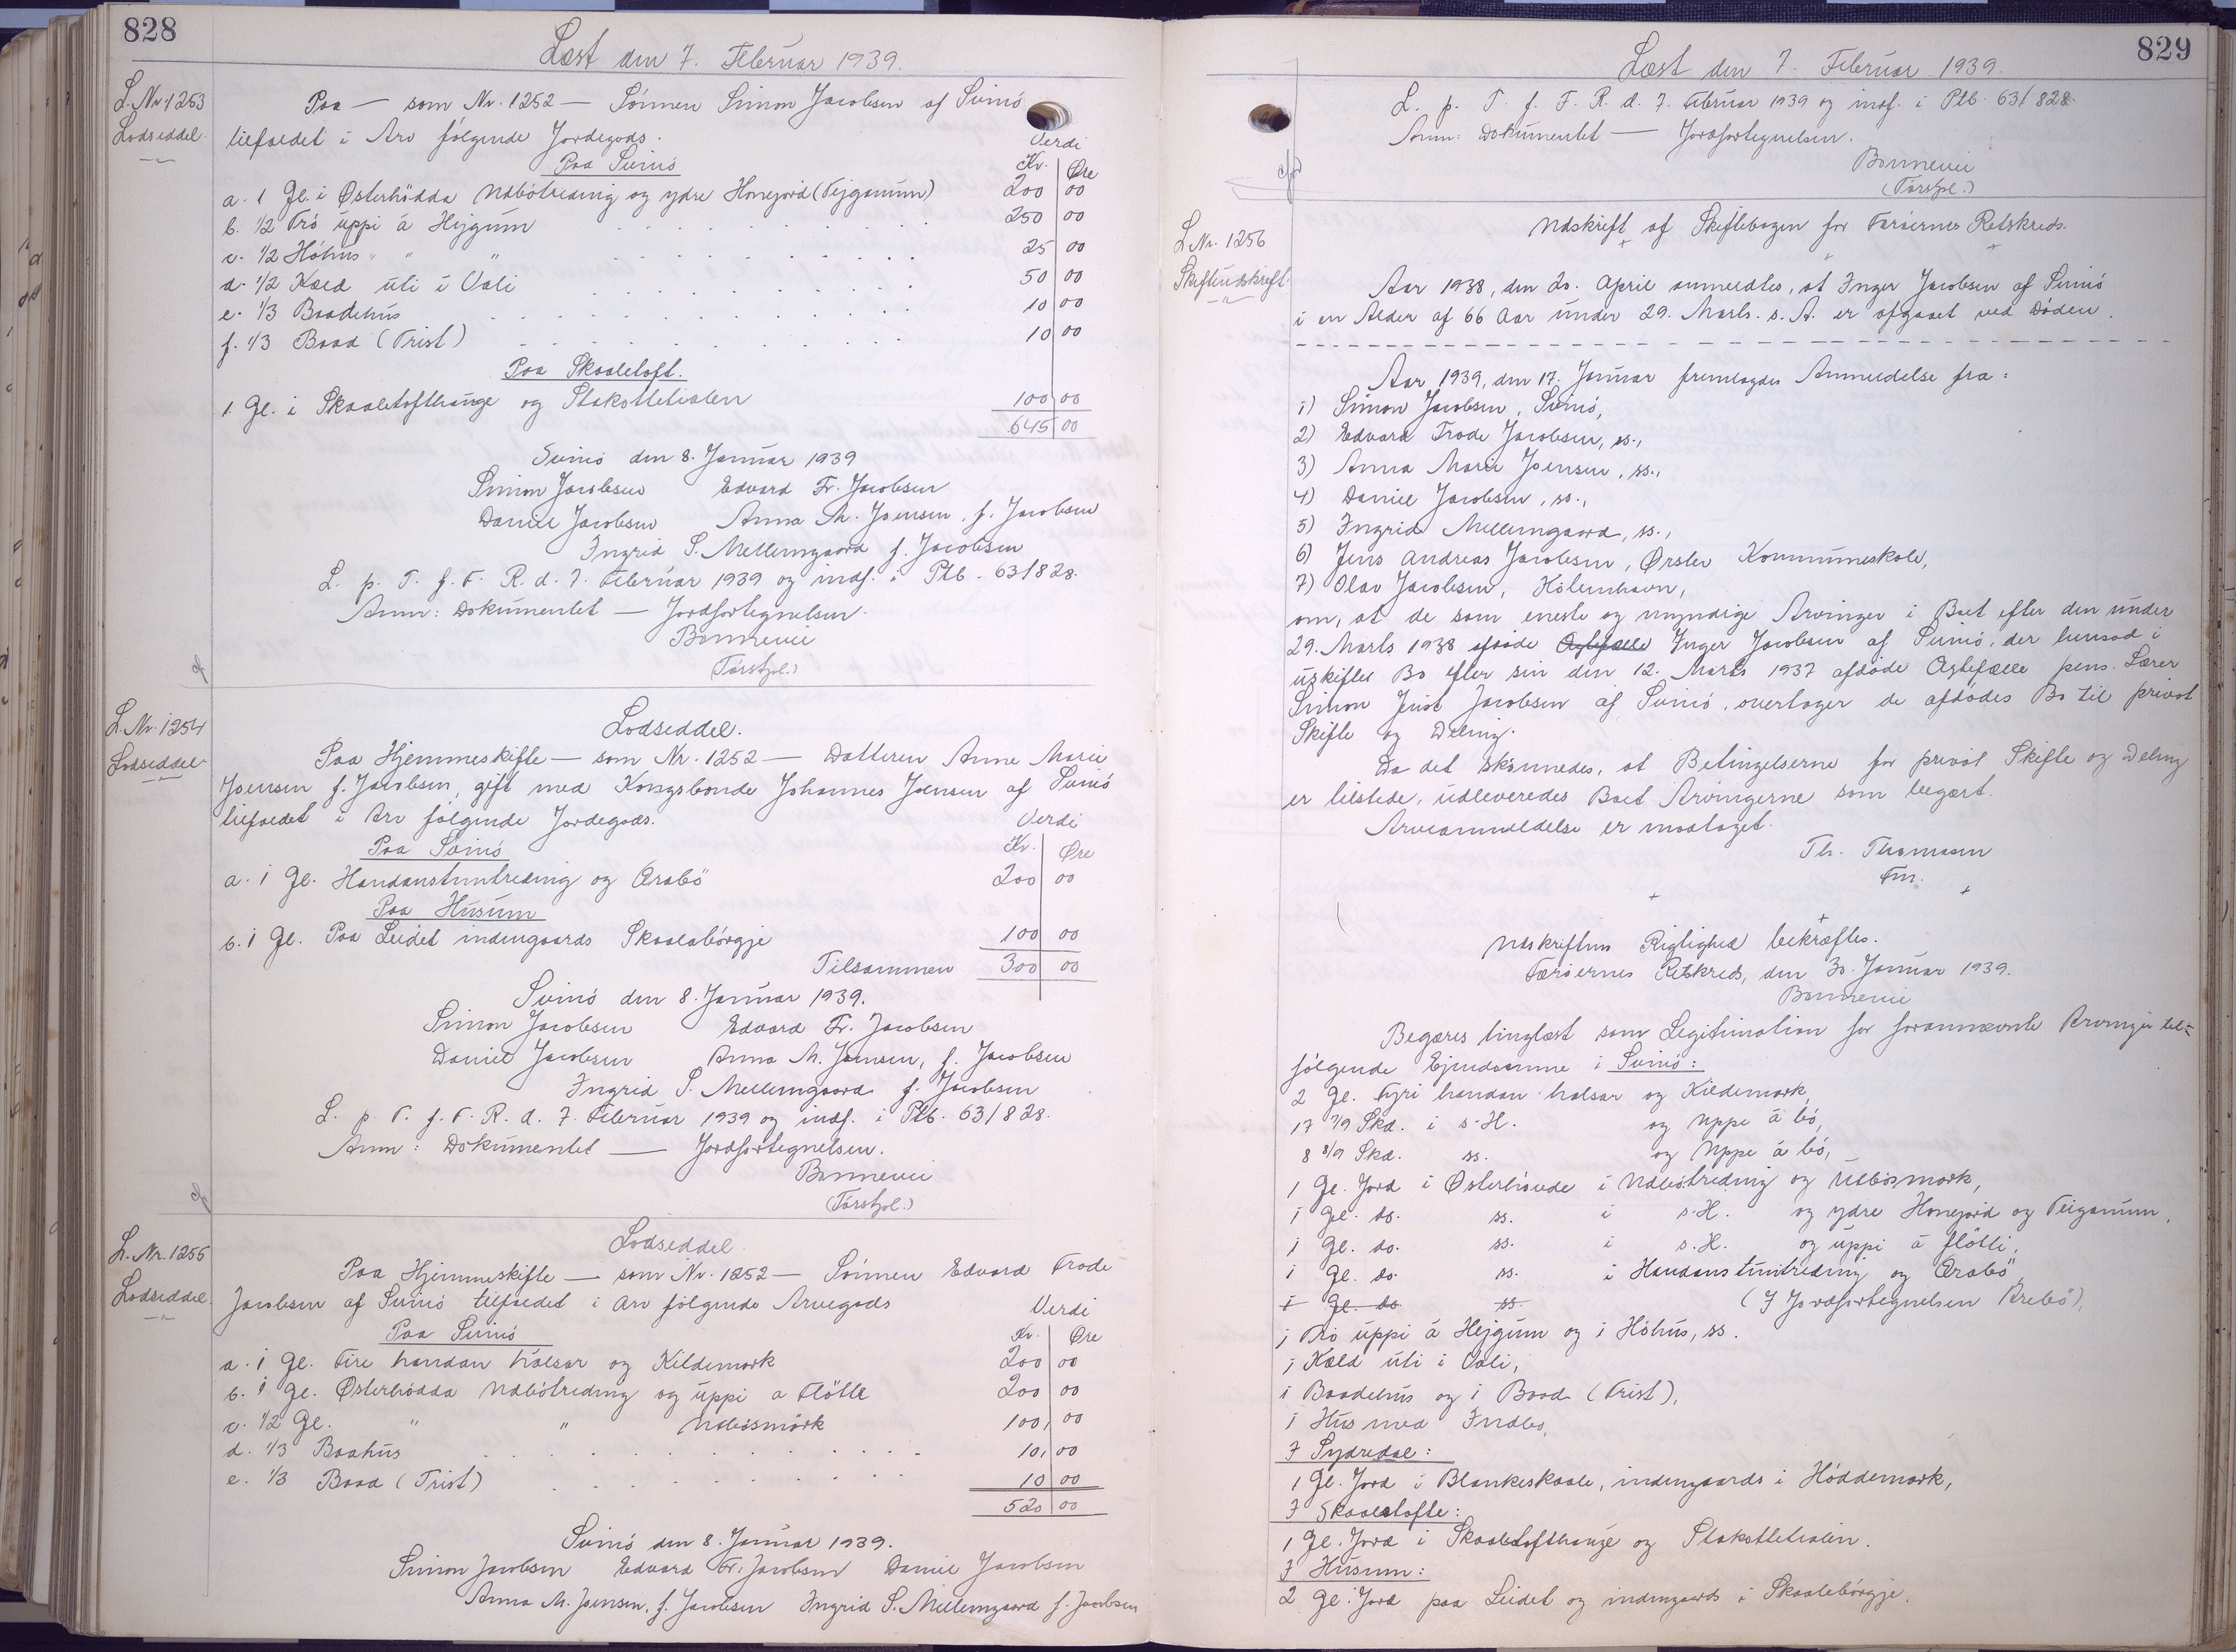 828
Læst den 7. Februar 1939.
L. Nr. 1253
Lodseddel.
Paa — som Nr. 1252 — Sönnen Simon Jacobsen af Svinö
tilfaldet i Arv følgende Jordegods.
Paa Svinö
Verdi
Kr. Øre
a. 1 Gl. i Østerhødda Udbötreding og ydre Honejord (Tejganum) 200 00
b. 1/2 Tró uppi á Hejgum 250 00
c. 1/2 Hóhus " " " 25 00
d. 1/2 Kæld uti i Vali 50 00
e. 1/3 Baadehus 10 00
f. 1/3 Baad (Trist) 10 00
Paa Skaaletoft.
1 Gl. i Skaaletofthauge og Stakstletialen 100 00
645 00
Svinö den 8. Januar 1939
Simon Jacobsen Edvard Fr. Jacobsen
Daniel Jacobsen Anna M. Joensen, f. Jacobsen
Ingrid S. Mellemgaard f. Jacobsen
L. p. T. f. F. R. d. 7. Februar 1939 og indf. i Ptb. 63/828.
Anm: Dokumentet — Jordfortegnelsen.
Bonnevie
(Forstpl.)
L. Nr. 1254
Lodseddel
Lodseddel.
Paa Hjemmeskifte — som Nr. 1252 — Datteren Anne Marie
Joensen f. Jacobsen, gift med Kongsbonde Johannes Joensen af Svinö
tilfaldet i Arv følgende Jordegods.
Verdi
Paa Svinö
Kr. Øre
a. 1 Gl. Handanstuntreding og Ørabö 200 00
Paa Husum
b. 1 Gl. Paa Leidet indengaards Skaalabórgje 100 00
Tilsammen 300 00
Svinö den 8. Januar 1939.
Simon Jacobsen Edvard Fr. Jacobsen
Daniel Jacobsen Anna M. Joensen, f. Jacobsen
Ingrid S. Mellemgaard f. Jacobsen
L. p. T. f. F. R. d. 7. Februar 1939 og indf. i Ptb. 63/828.
Anm: Dokumentet — Jordfortegnelsen.
Bonnevie
(Forstpl.)
L. Nr. 1255
Lodseddel
Lodseddel
Paa Hjemmeskifte — som Nr. 1252 — Sönnen Edvard Frode
Jacobsen af Svinö tilfaldet i Arv følgende Arvegods
Verdi
Paa Svinö
Kr. Øre
a. 1 Gl. Fire handan hálsar og Kildemark 200 00
b. 1 Gl. Østerhødda Udbötreding og uppi a Fløtte 200 00
c. 1/2 Gl. " " Udbösmörk 100, 00
d. 1/3 Baahus 10, 00
e. 1/3 Baad (Trist) 10 00
520 00
Svinö den 8. Januar 1939.
Simon Jacobsen Edvard Fr. Jacobsen Daniel Jacobsen
Anna M. Joensen, f. Jacobsen Ingrid S. Mellemgaard f. Jacobsen
829
Læst den 7. Februar 1939.
L. p. T. f. F. R. d. 7. Februar 1939 og indf. i Ptb. 63/828.
Anm: Dokumentet — Jordfortegnelsen.
Bonnevie
(Forstpl.)
L. Nr. 1256
Skifteudskrift
Udskrift af Skiftebogen for Færöernes Retskreds.
Aar 1938, den 20. April anmeldtes, at Inger Jacobsen af Svinö
i en Alder af 66 Aar under 29. Marts. s. A. er afgaaet ved Døden.
Aar 1939, den 17. Januar fremlagdes Anmeldelse fra:
1) Simon Jacobsen, Svinö,
2) Edvard Frode Jacobsen, ss.,
3) Anna Marie Joensen, ss.,
4) Daniel Jacobsen, ss.,
5) Ingrid Mellemgaard, ss.,
6) Jens Andreas Jacobsen, Ørslev Kommuneskole,
7) Olav Jacobsen, Hólenhavn,
om, at de som eneste og myndige Arvinger i Boet efter den under
29. Marts 1938 afdøde Ægtefælle Inger Jacobsen af Svinö, der hensad i
uskiftet Bo efter sin den 12. Marts 1937 afdøde Ægtefælle pens. Lærer
Simon Just Jacobsen af Svinö, overtager de afdødes Bo til privat
Skifte og Deling.
Da det skönnedes, at Betingelserne for privat Skifte og Deling
er tilstede, udleveredes Boet Arvingerne som begært.
Arveanmeldelse er modtaget.
Th. Thomasen
Fm.
Udskriftens Rigtighed bekræftes.
Færöernes Retskreds, den 30. Januar 1939.
Bonnevie
Begæres tinglæst som Legitimation for forannævnte Arvinger til
følgende Ejendomme i Svinö:
2 Gl. Fyri handan halsar og Kildemark,
17 7/9 Skd. i s. H. og uppi á bó,
8 8/9 Skd. ss. og Uppi á bó,
1 Gl. Jord i Østerhövde i Udbötreding og Udbösmark,
1 Gl. do. ss. i s. H. og ydre Honejord og Teiganum,
1 Gl. do. ss. i s. H. og uppi á fløtti,
1 Gl. do. ss. i Handanstuntreding og Ørabö
1 Gl. do ss. (I Jordfortegnelsen Krebö),
1 Tró uppi á Hejgum og 1 Hóhus, ss.
1 Kæld uti i Vali,
1 Baadehus og 1 Baad (Trist),
1 Hus med Indbo,
I Sydredal:
1 Gl. Jord i Blankeskaale, indengaards i Høddemark,
I Skaaletofte:
1 Gl. Jord i Skaaletofthauge og Stakstletialen.
I Husum:
2 Gl. Jord paa Leidet og indengaards i Skaalebórgje.